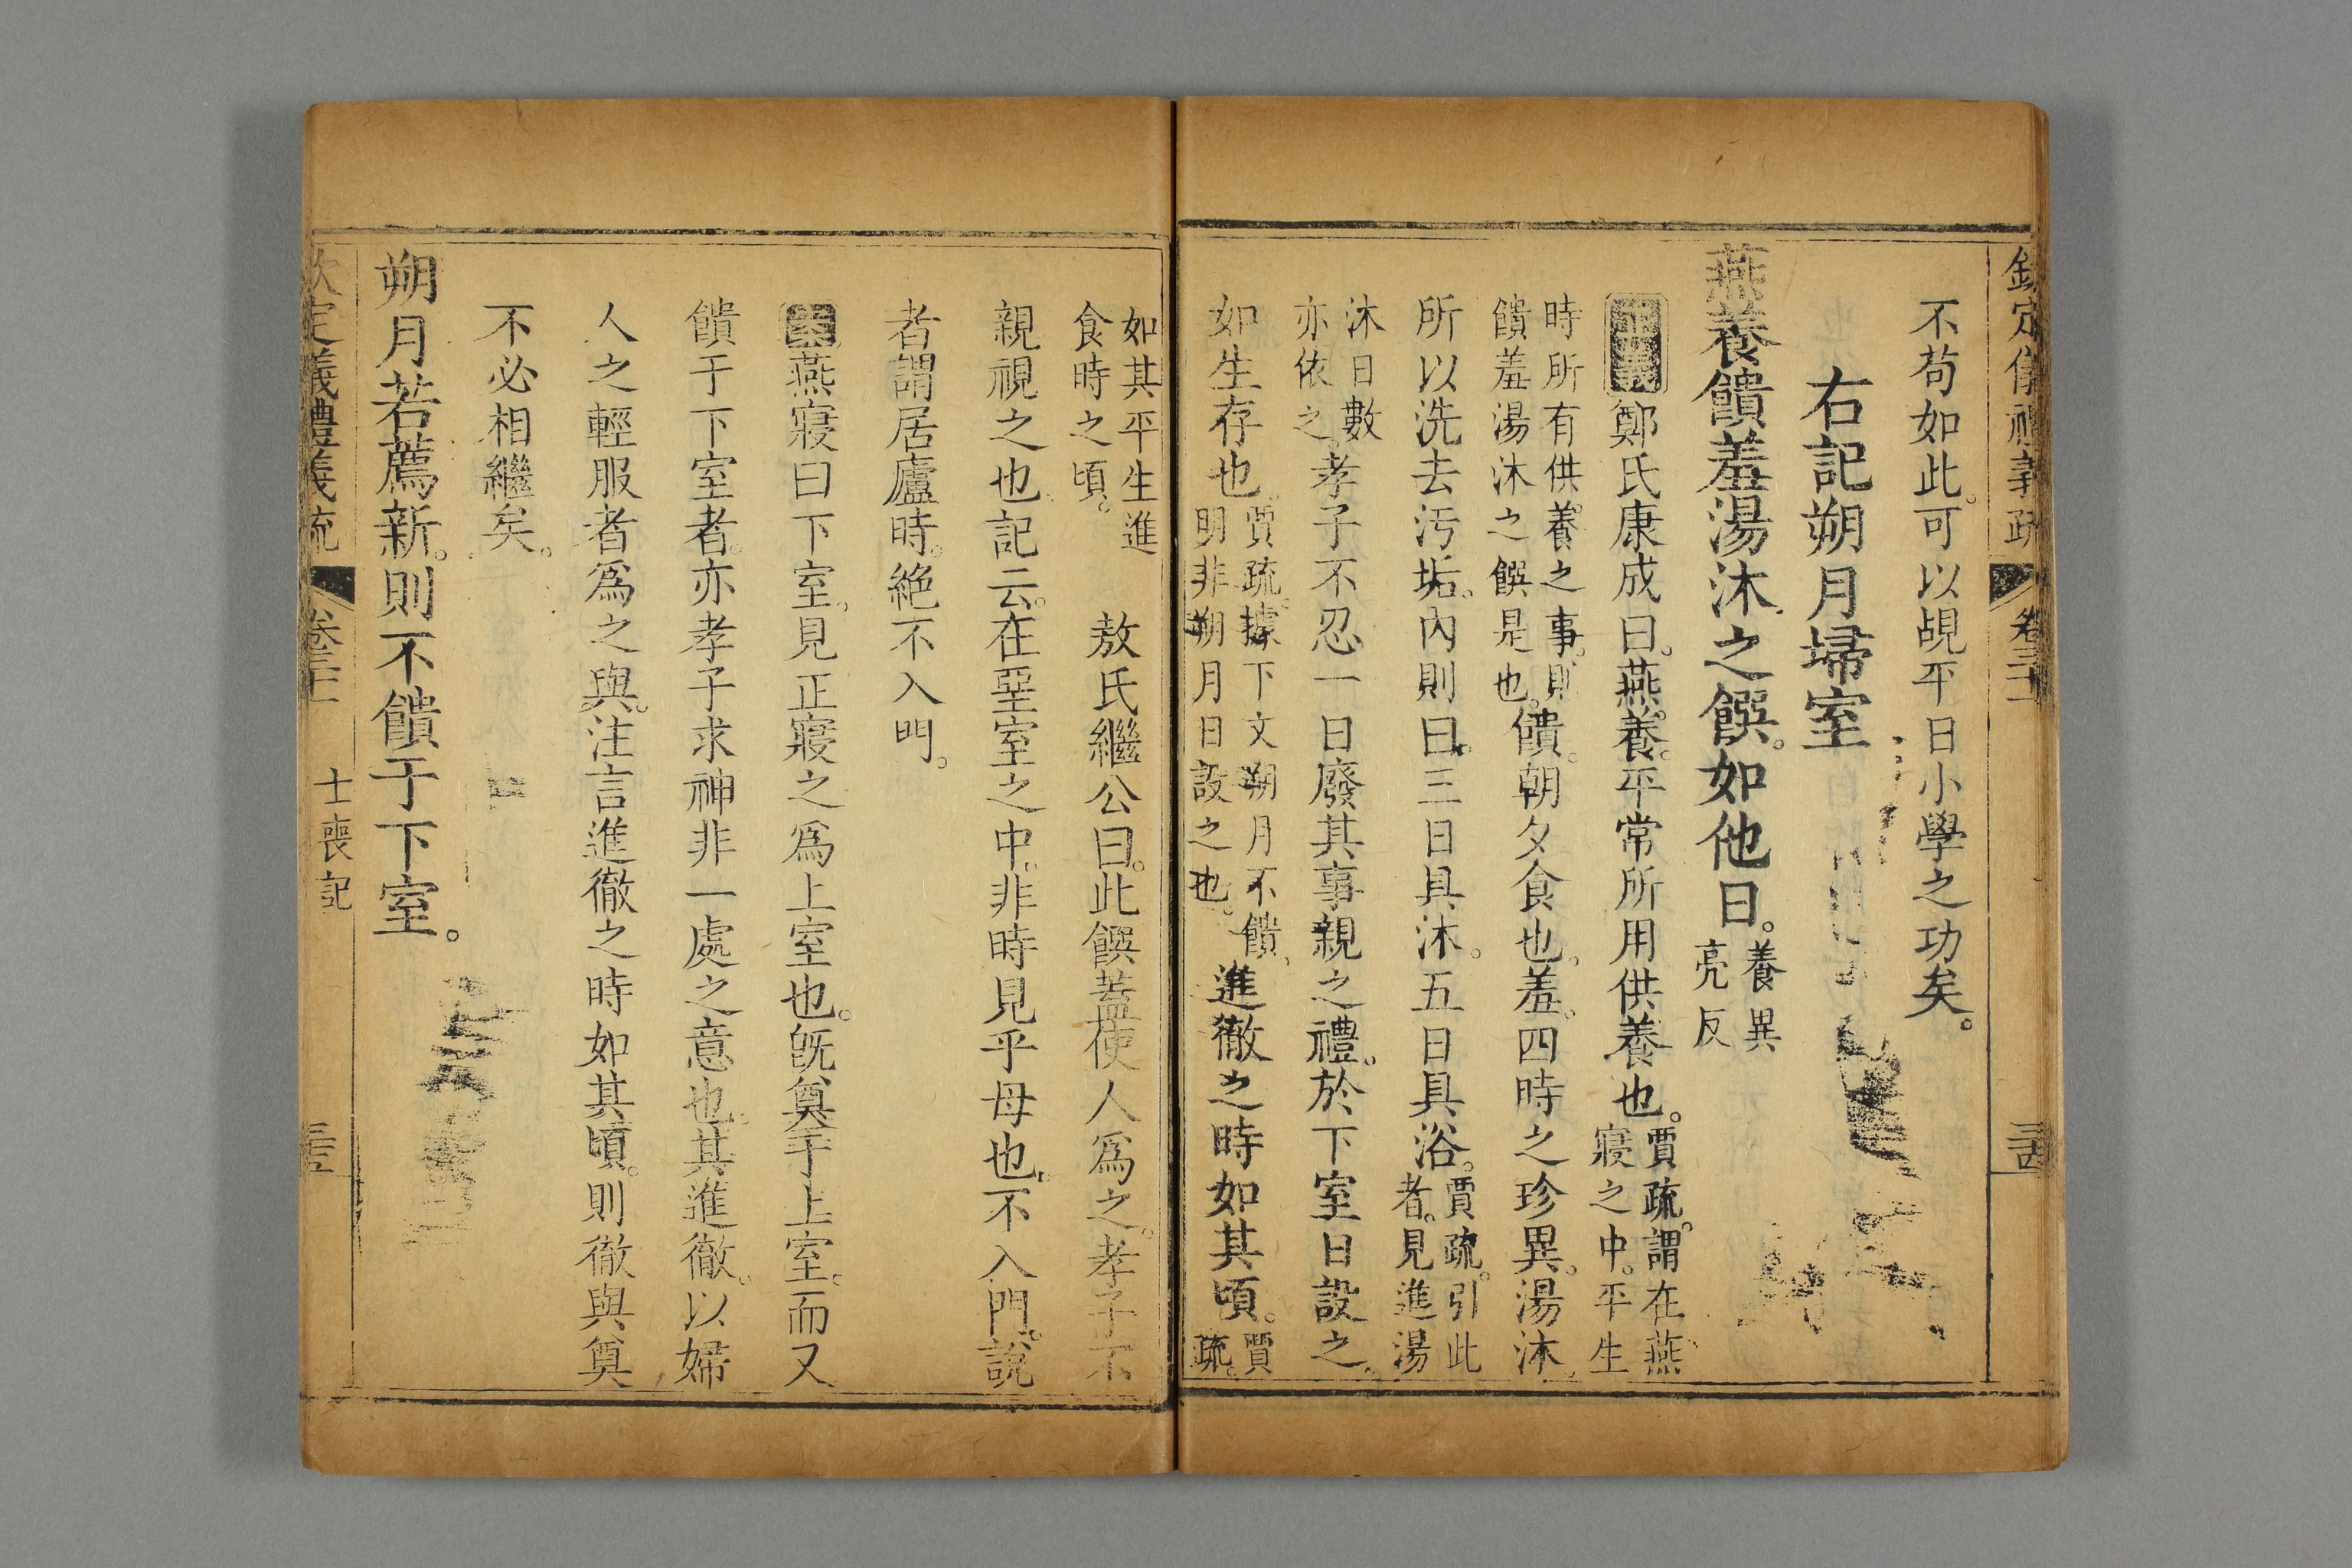 欽定儀禮義疏 卷三十一 三十四
不苟如此。可以覘平日小學之功矣。
右記朔月埽室
燕養饋羞湯沐之饌。如他日。養異亮反
正義 鄭氏康成曰。燕養。平常所用供養也。賈疏。謂在燕寢之中。平生
時所有供養之事。則饋羞湯沐之饌是也。饋。朝夕食也。羞。四時之珍異。湯沐。
所以洗去汚垢。內則曰。三日具沐。五日具浴。賈疏。引此者。見進湯
沐日數亦依之。孝子不忍一日廢其事親之禮。於下室日設之。
如生存也。賈疏。據下文朔月不饋。明非朔月日設之也。進徹之時如其頃。賈疏。
如其平生進食時之頃。 敖氏繼公曰。此饌蓋使人爲之。孝子不
親視之也。記云。在堊室之中。非時見乎母也。不入門。說
者謂居廬時。絶不入門。
案 燕寢曰下室。見正寢之爲上室也。旣奠于上室。而又
饋于下室者。亦孝子求神非一處之意也。其進徹。以婦
人之輕服者爲之與。注言進徹之時如其頃。則徹與奠
不必相繼矣。
朔月若薦新。則不饋于下室。
欽定儀禮義疏 卷三十一 士喪記 三十五